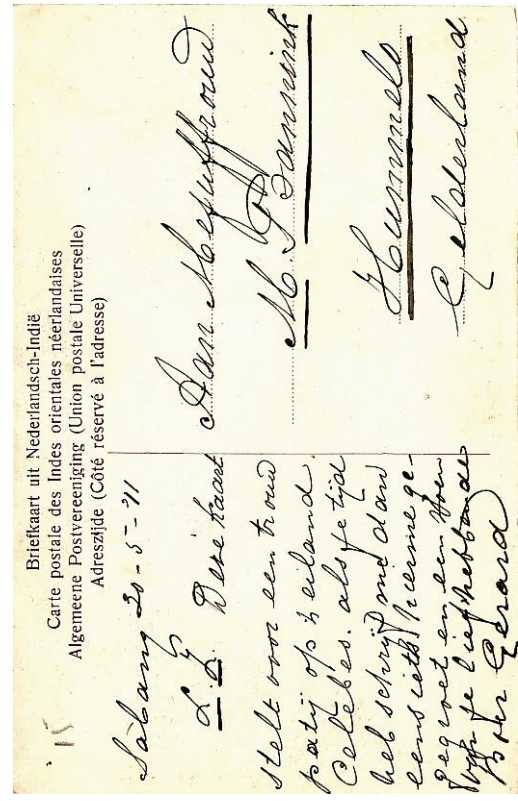 15
Briefkaart uit Nederlandsch-Indië
Carte postale des Indes orientales néerlandaises
Algemeene Postvereeniging (Union postale Universelle)
Adreszijde (Côté réservé à l'adresse)
Sabang 30-5-'11
L. Z. Deze kaart
stelt voor een trouw
patij op 't eiland
Celebes. als je tijd
heb schrijf mij dan
eens iets. hierme ge-
gegroet en een
van je liefhebbende
Broer Gerard
Aan Mejuffrouw
M. Bannink
Hummelo
Gelderland